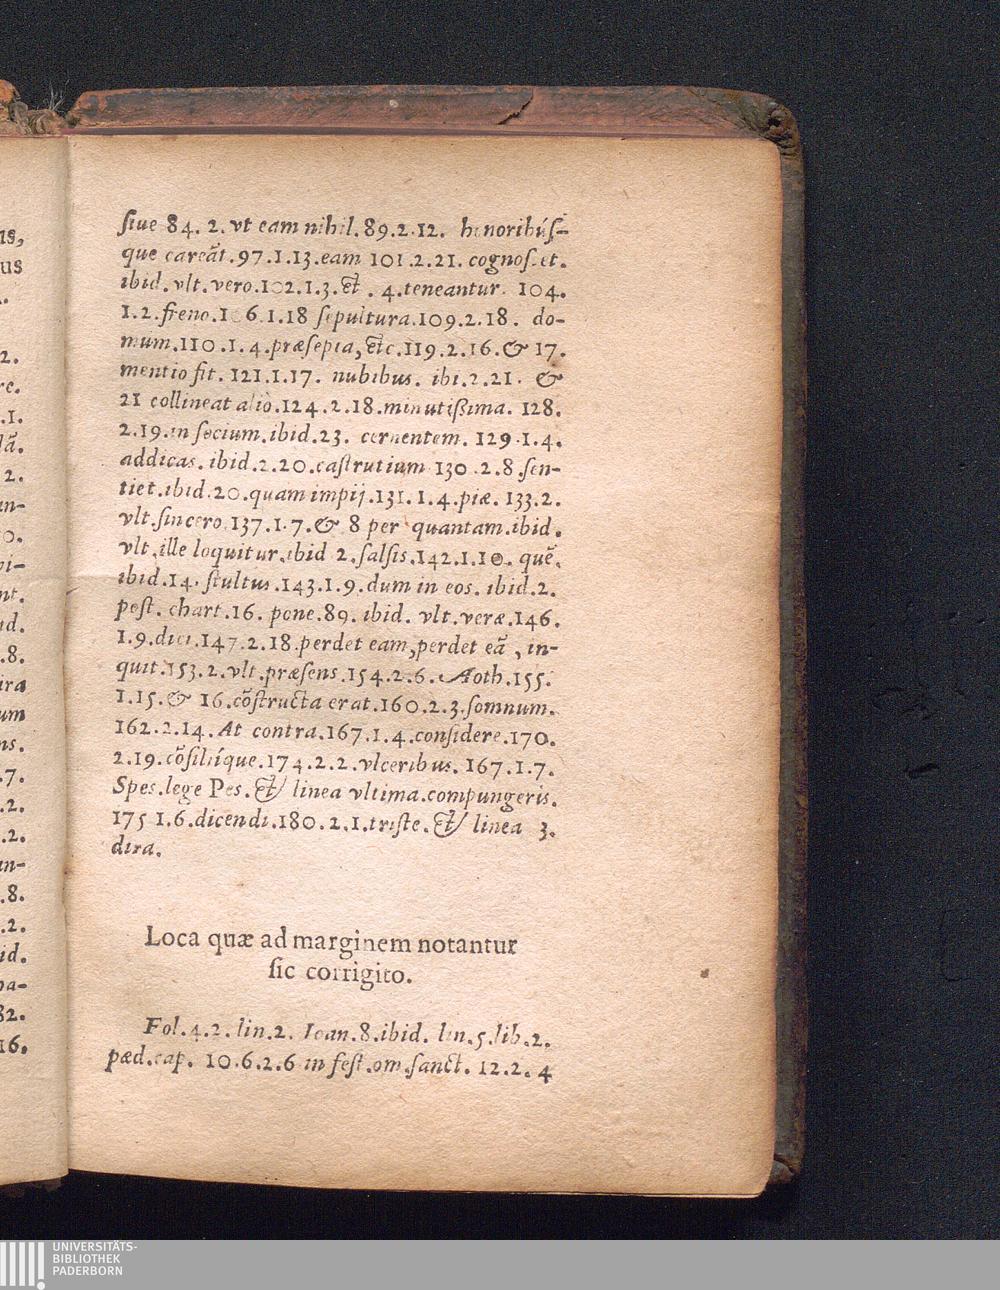 ſiue 84. 2. vt eam nihil. 89.2.12. honoribúſ-
que careāt.97.1.13.eam 101.2.21. cognoſcit.
ibid. vlt. vero.102.1.3.& . 4.teneantur. 104.
1.2.freno.106.1.18 ſepultura.109.2.18. do-
mum.110.1.4.præſepia, &c.119.2.16.& 17.
mentio fit. 121.1.17. nubibus. ibi.2.21. &
21 collineat aliò.124.2.18.minutißima. 128.
2.19.in ſocium.ibid.23. cernentem. 129.1.4.
addicas. ibid.2.20.caſtrutium 130.2.8.ſen-
tiet.ibid.20.quam impij.131.1.4.piæ. 133.2.
vlt.ſincero.137.1.7.& 8 per quantam.ibid.
vlt.ille loquitur.ibid 2.ſalſis.142.1.10. quē.
ibid.14. ſtultus.143.1.9.dum in eos. ibid.2.
poſt. chart.16. pone.89. ibid. vlt.veræ.146.
1.9.dici.147.2.18.perdet eam,perdet eā, in-
quit.153.2.vlt.præſens.154.2.6. Aoth.155.
1.15.& 16.cōſtructa erat.160.2.3.ſomnum.
162.2.14. At contra.167.1.4.conſidere.170.
2.19.cōſilíique.174.2.2.vlceribus. 167.1.7.
Spes.lege Pes.& linea vltima.compungeris.
175 1.6.dicendi.180.2.1.triſte.& linea 3.
dira.
Loca quæ ad marginem notantur
ſic corrigito.
Fol.4.2. lin.2. Ioan.8.ibid. lin.5.lib.2.
pæd.cap. 10.6.2.6 in feſt.om.ſanct. 12.2.4
us,
us
2.
re.
.1.
lā.
2.
in-
0.
pi-
nt.
id.
.8.
ira
um
ns.
.7.
.2.
.2.
in-
.8.
.2.
id.
pa-
82.
16.
UNIVERSITÄTS-
BIBLIOTHEK
PADERBORN